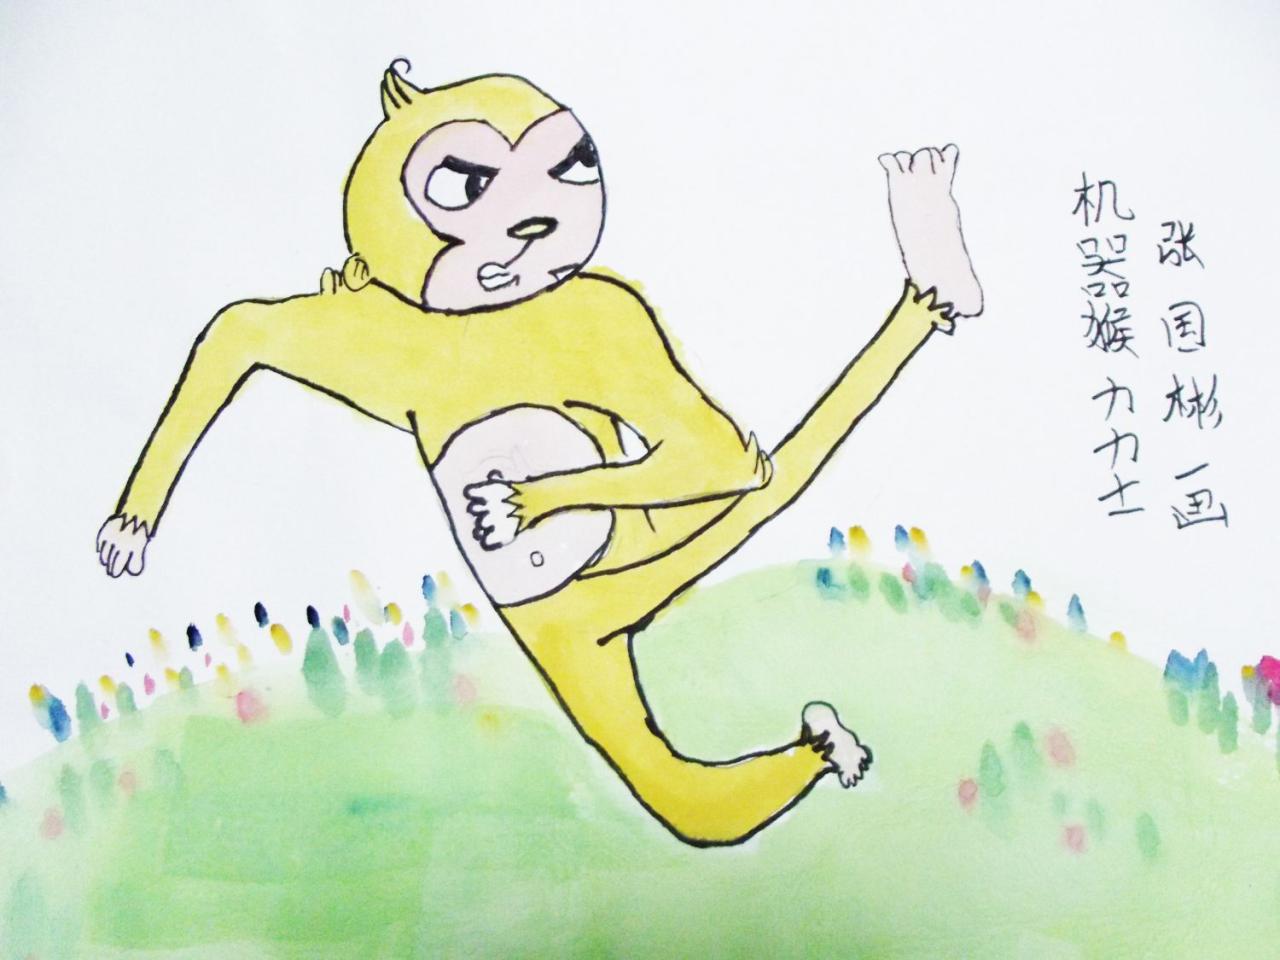 机器猴力力士
张国彬画